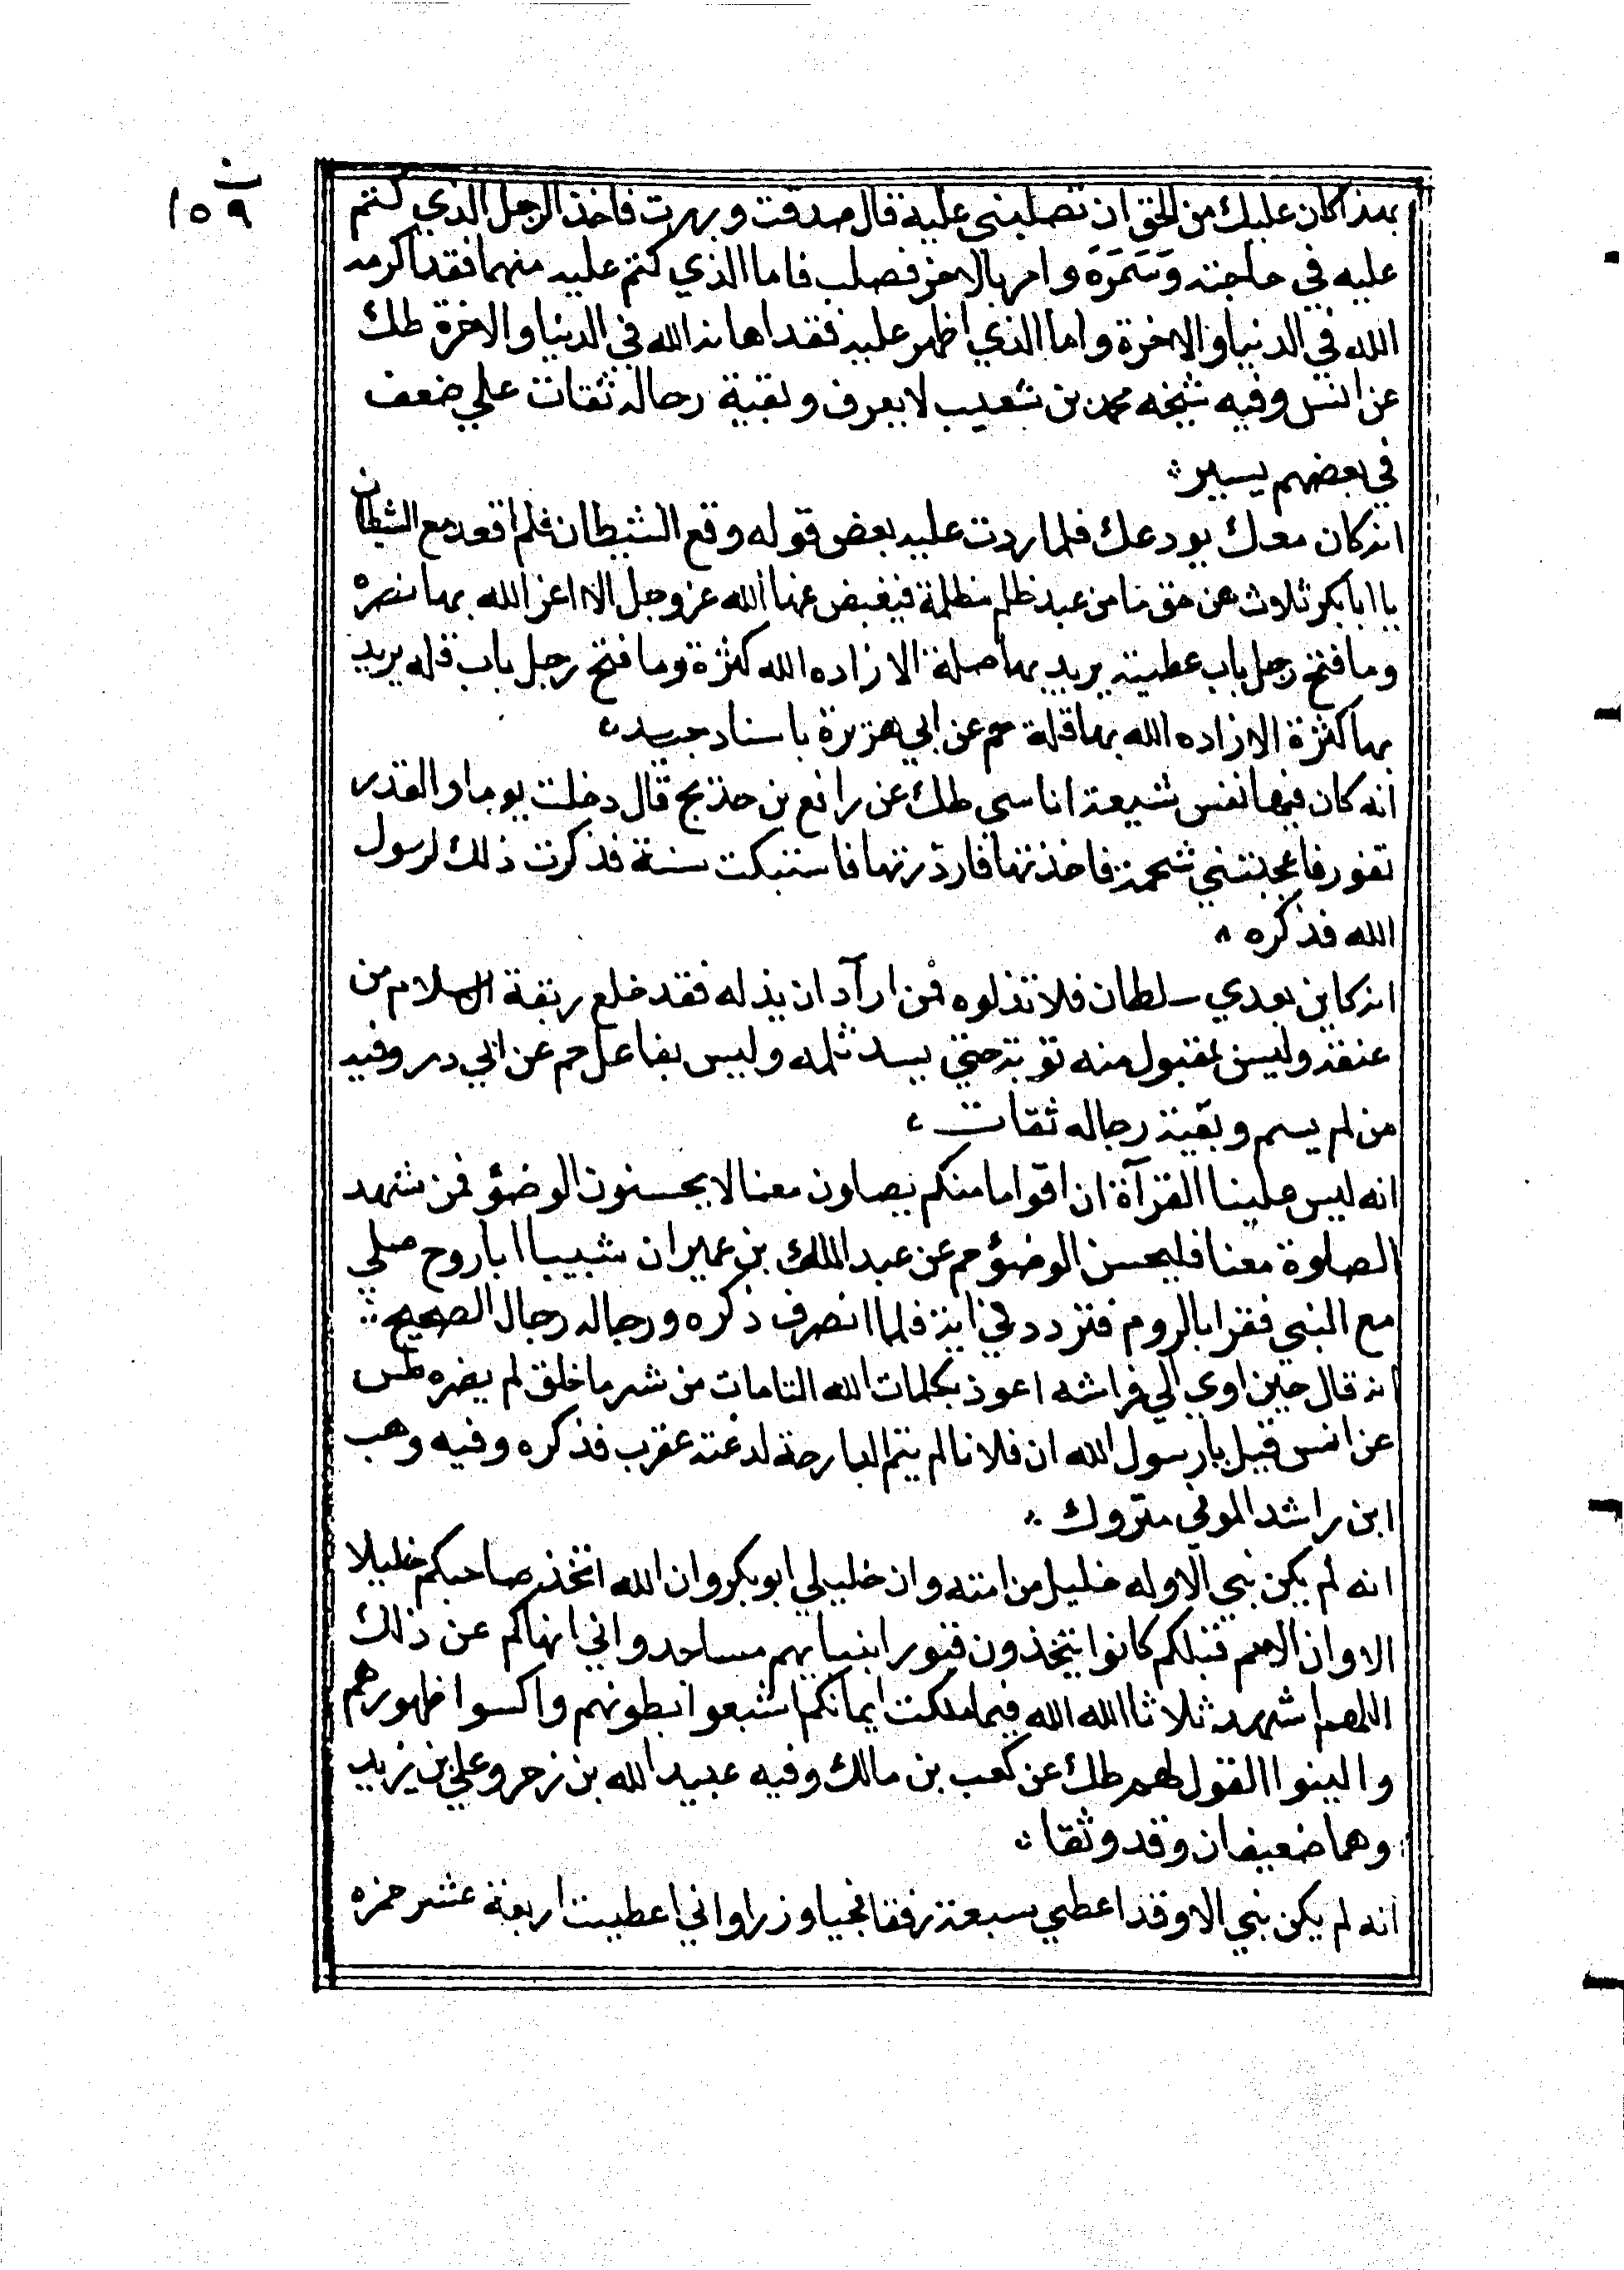 ن
١٥٩
بهذا كان عليك من الحق ان تصلبني عليه قال صدقت وبررت فاخذ الرجل الذي كتم
عليه في حاجته وسمره وامر بالاخر فصلب فاما الذي كتم عليه منهما فقد اكرمه
الله في الدنيا والاخرة واما الذي اظهر عليه فقد اهانه الله في الدنيا والاخرة طك
عن انس وفيه شيخه محمد بن شعيب لا يعرف وبقية رجاله ثقات علي ضعف
في بعضهم يسير
انه كان معك يودعك فلما رددت عليه بعض قوله وقع الشيطان فلم اقعد مع الشيطان
يا ابا بكر ثلاوث هن حق ما من عبد ظلم مظلمة فيغبض عنها الله عز وجل الا اعز الله بها نصره
وما فتح رجل باب عطية يريد بها صلة الا زاده الله كثرة وما فتح رجل باب قله يريد
بها كثرة الا زاده الله بها قلة حم عن ابي هريرة باسناد جيد
انه كان فيها نفس شيعة اناسي طك عن رافع بن خديج قال دخلت يوما والقدر
تفور فاعجبتني شحمة فاخذتها فازدردتها فاشتكيت سنة فذكرت ذلك لرسول
الله فذكره
انه كاين بعدي سلطان فلا تذلوه فمن اراد ان يذله فقد خلع ربقة الاسلام من
عنقه وليس بمقبول منه توبة حتي يسد ثلمه وليس بفاعل حم عن ابي در وفيه
من لم يسم وبقية رجاله ثقات
انه لبس علينا القرآة ان اقواما منكم يصلون معنا لا يحسنون الوضؤ فمن شهد
الصلوة معنا فليحسن الوضؤ حم عن عبد الملك بن عمير ان شبيبا ابا روح صلي
مع النبي فقرا بالروم فتردد في اية فلما انصرف ذكره ورجاله رجال الصحيح
انه قال حين اوي الي فراشه اعوذ بكلمات الله التامات من شر ما خلق لم يضره طس
عن انس قيل يا رسول الله ان فلانا لم ينم البارحة لدغته عقرب فذكره وفيه وهب
ابن راشد الموفي متروك
انه لم يكن نبي الا وله خليل من امته وان خليلي ابو بكر وان الله اتخذ صاحبكم خليلا
الا وان الامم قبلكم كانوا يتخذون قبور انبيايهم مساجد واني انهاكم عن ذلك
اللهم اشهد ثلاثا الله الله فيما ملكت ايمانكم اشبعوا بطونهم واكسوا ظهورهم
والينوا القول لهم طك عن كعب بن مالك وفيه عبيد الله بن زحر وعلي بن يزيد
وهما ضعيفان وقد وثقا
انه لم يكن نبي الا وقد اعطي سبعة رفقا نجبا وزرا واني اعطيت اربعة عشر حمزه